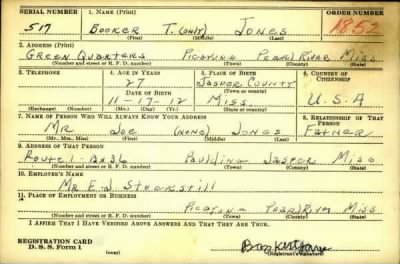 SERIAL NUMBER 1. NAME (Print) ORDER NUMBER
517 BOOKER T. (only) JONES 1852
(First) (Middle) (Last)
2. ADDRESS (Print)
GREEN QUARTERS PICAYUNE PEARL RIVER MISS
(Number and street or R. F. D. number) (Town) (County) (State)
3. TELEPHONE 4. AGE IN YEARS 5. PLACE OF BIRTH 6. COUNTRY OF CITIZENSHIP
27 JASPER COUNTY
DATE OF BIRTH (Town or county)
11-17-12 MISS. U.S.A
(Exchange) (Number) (Mo.) (Day) (Yr.) (State or country)
7. NAME OF PERSON WHO WILL ALWAYS KNOW YOUR ADDRESS 8. RELATIONSHIP OF THAT PERSON
MR JOE (NONE) JONES FATHER
(Mr., Mrs., Miss) (First) (Middle) (Last)
9. ADDRESS OF THAT PERSON
ROUTE 1- BX36 PAULDING JASPER MISS
(Number and street or R. F. D. number) (Town) (County) (State)
10. EMPLOYER'S NAME
MR E. J. Stockstill
11. PLACE OF EMPLOYMENT OR BUSINESS
PICAYUNE PEARL RIVER MISS
(Number and street or R. F. D. number) (Town) (County) (State)
I AFFIRM THAT I HAVE VERIFIED ABOVE ANSWERS AND THAT THEY ARE TRUE.
REGISTRATION CARD
D. S. S. Form 1 (over) (Registrant's signature)